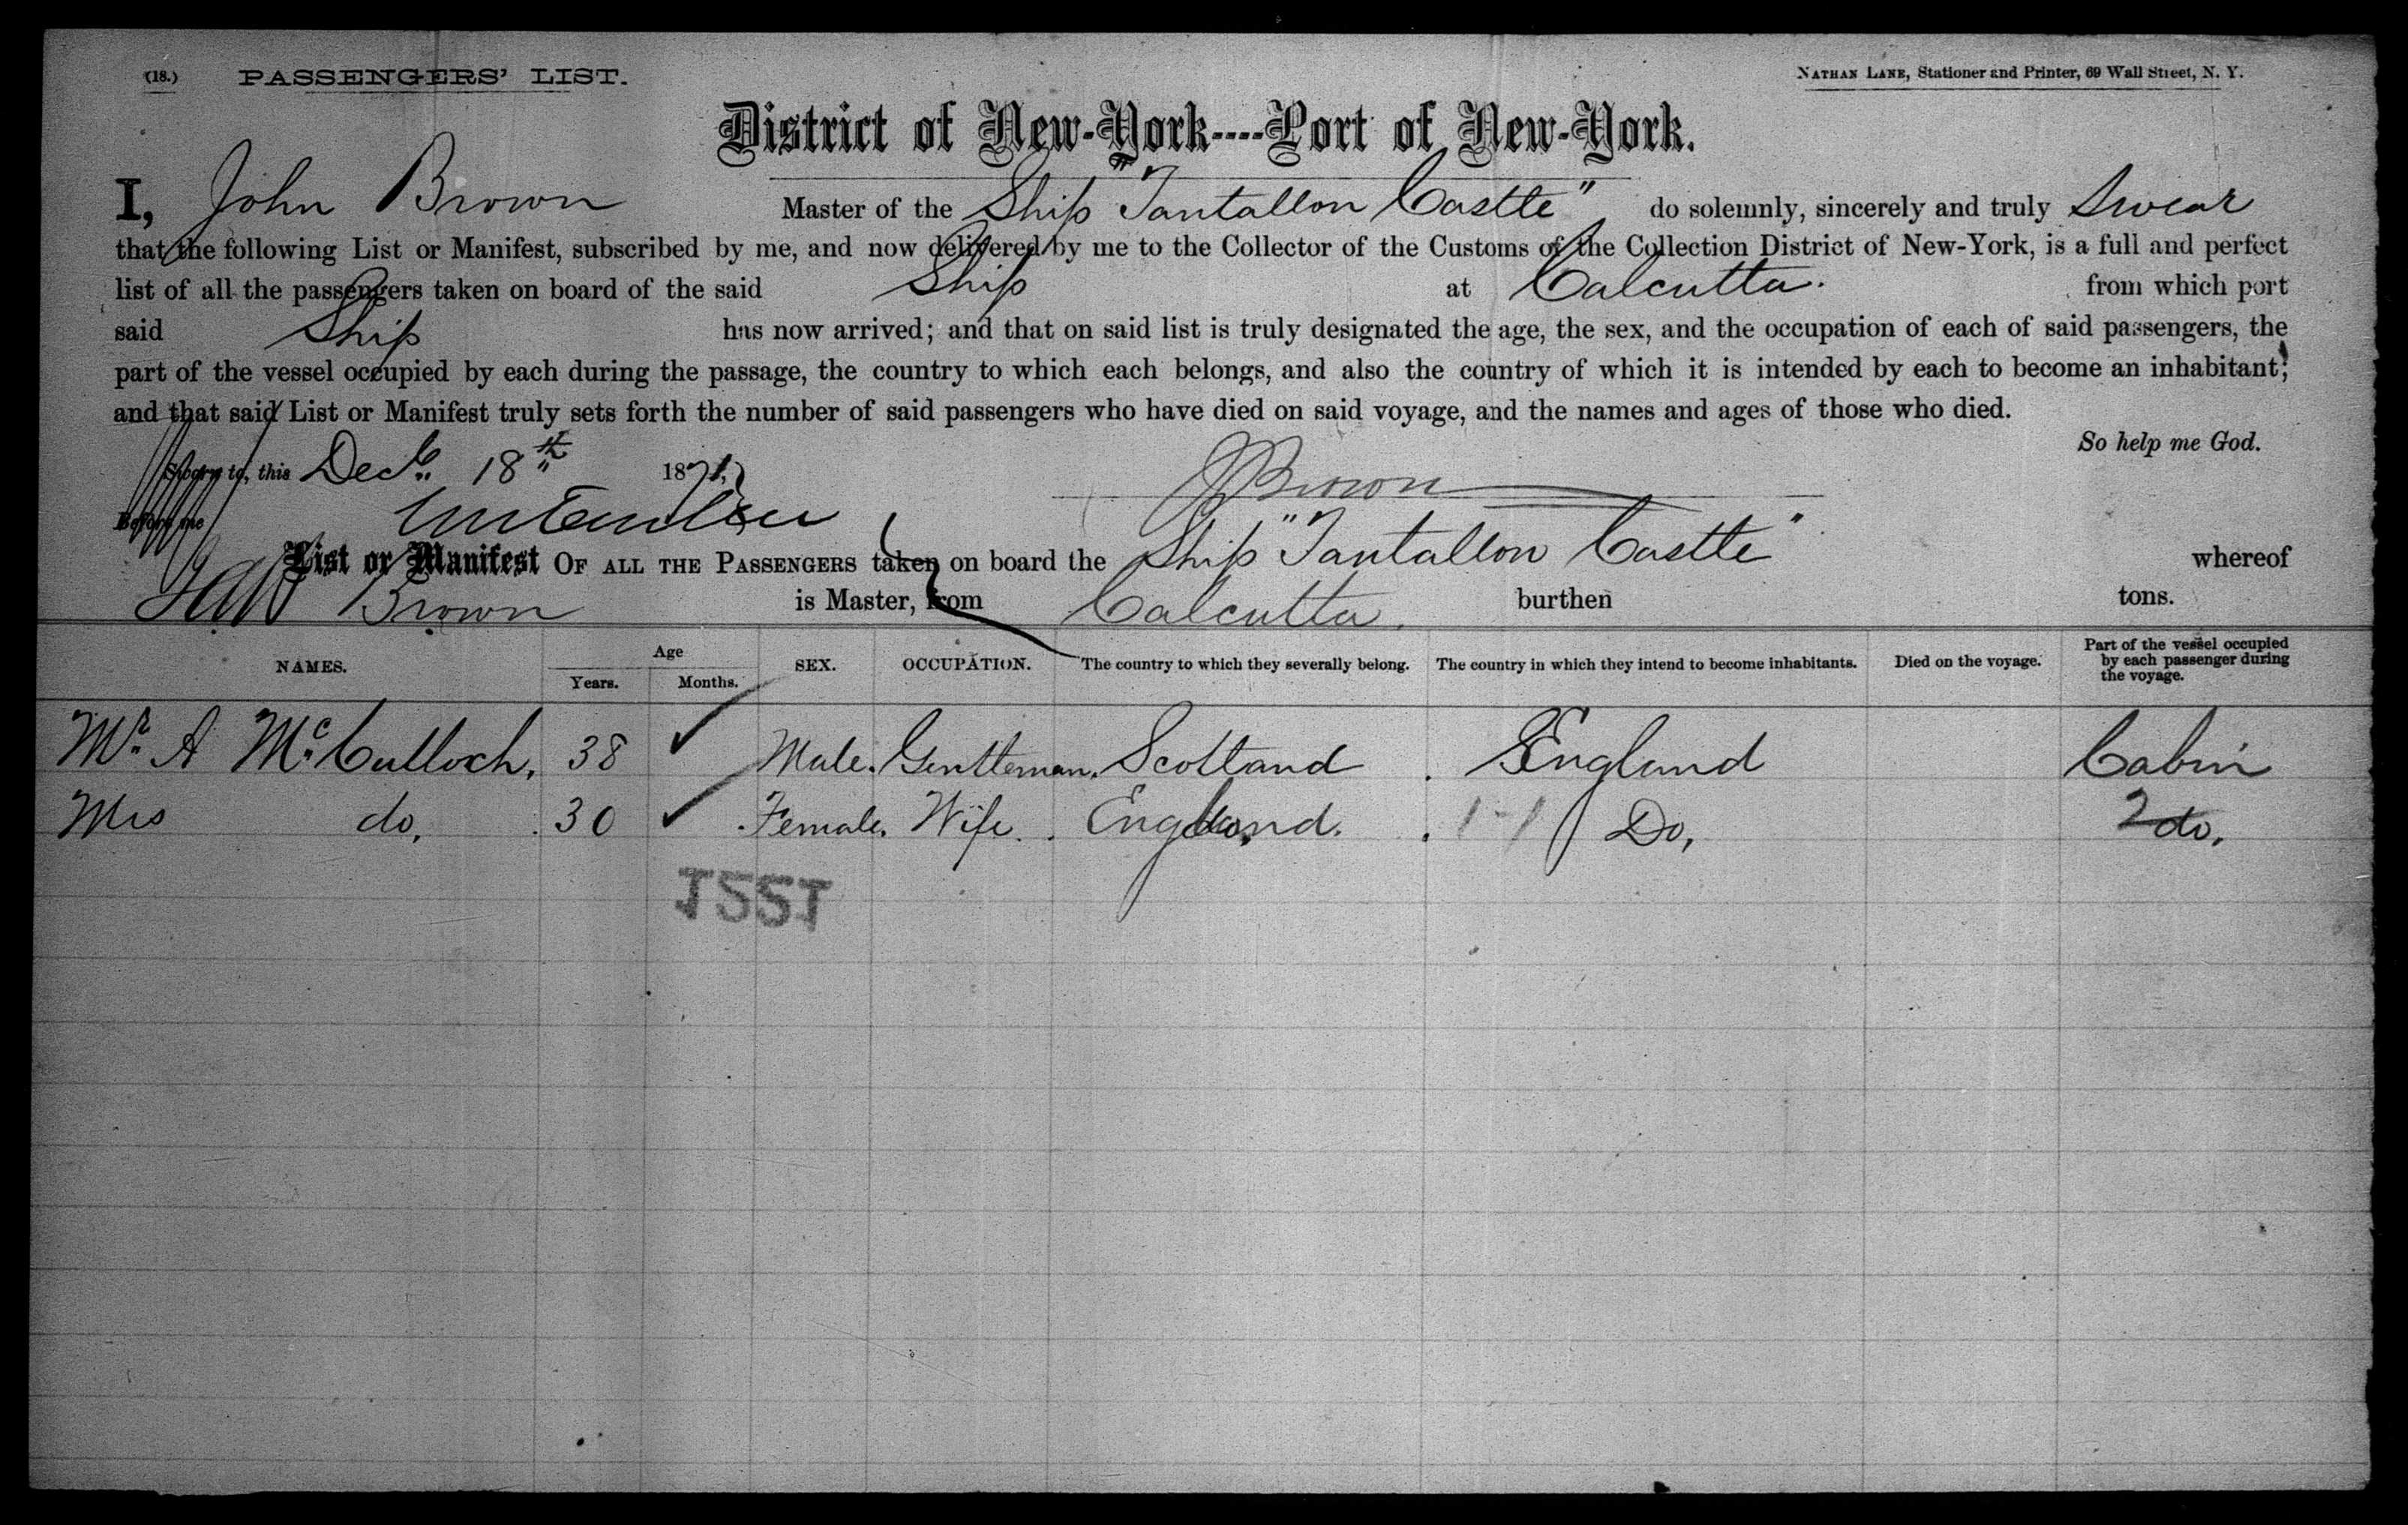 (18.) PASSENGERS' LIST.
NATHAN LANE, Stationer and Printer, 69 Wall Street, N. Y.
District of New-York----Port of New-York.
I, John Brown Master of the Ship "Tantallon Castle" do solemnly, sincerely and truly Swear
that the following List or Manifest, subscribed by me, and now delivered by me to the Collector of the Customs of the Collection District of New-York, is a full and perfect
list of all the passengers taken on board of the said Ship at Calcutta. from which port
said Ship has now arrived; and that on said list is truly designated the age, the sex, and the occupation of each of said passengers, the
part of the vessel occupied by each during the passage, the country to which each belongs, and also the country of which it is intended by each to become an inhabitant;
and that said List or Manifest truly sets forth the number of said passengers who have died on said voyage, and the names and ages of those who died.
So help me God.
Sworn to, this Dec. 18th 1871. JBrown
Before me
List or Manifest OF ALL THE PASSENGERS taken on board the Ship "Tantallon Castle" whereof
Brown is Master, from Calcutta. burthen tons.
NAMES. Age Years. Months. SEX. OCCUPATION. The country to which they severally belong. The country in which they intend to become inhabitants. Died on the voyage. Part of the vessel occupied by each passenger during the voyage.
Mr. A McCulloch. 38 ✓ Male. Gentleman. Scotland England Cabin
Mrs do. 30 ✓ Female. Wife. England. Do. do.
1551